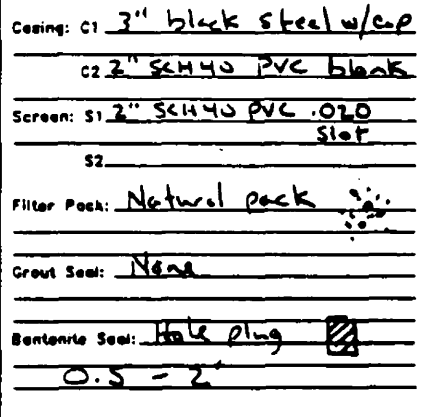 Casing: C1 3" black steel w/cap
C2 2" SCH 40 PVC blank
Screen: S1 2" SCH 40 PVC .020
Slot
S2
Filter Pack: Natural pack
Grout Seal: None
Bentonite Seal: Hole plug
0.5 - 2'